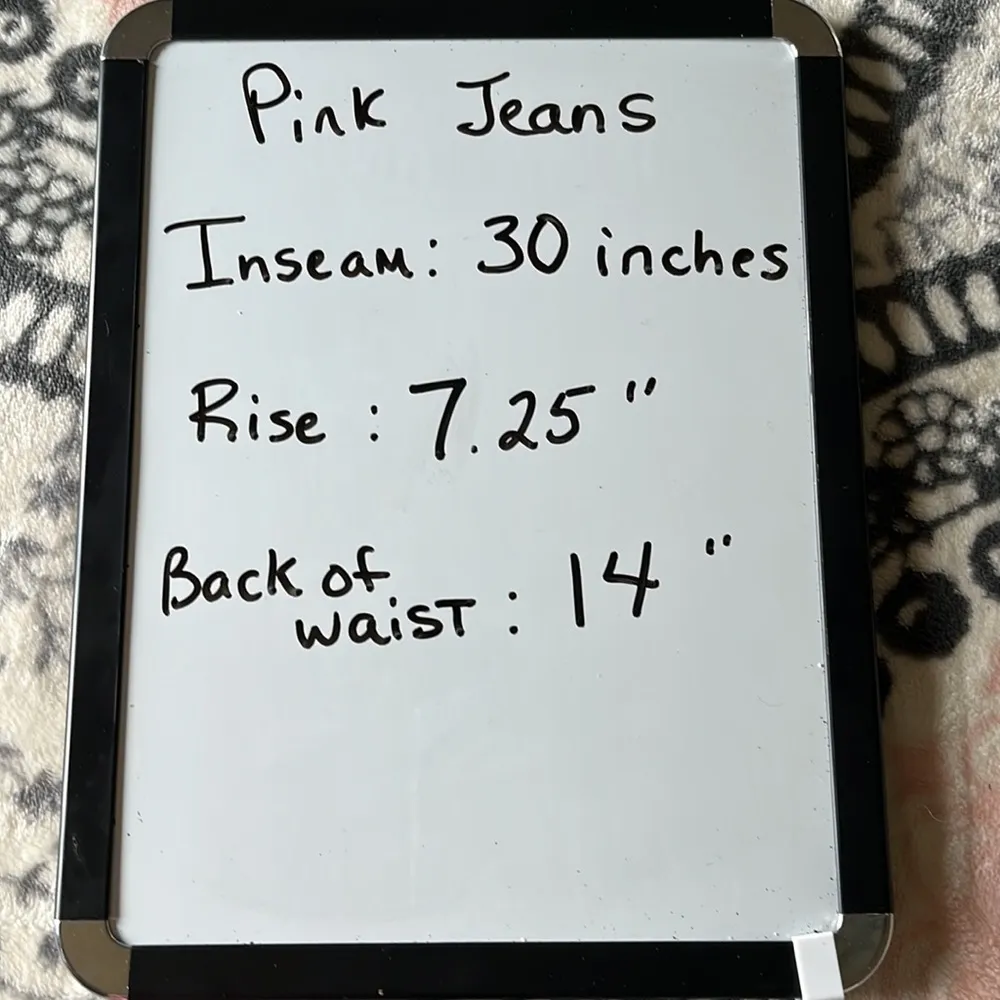 Pink Jeans
Inseam: 30 inches
Rise : 7.25"
Back of
waist : 14"